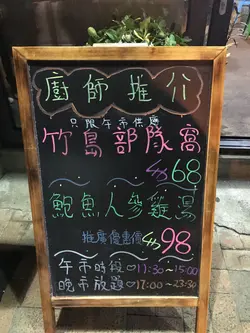 廚師推介
只限午市供應
竹島部隊窩
$68
鮑魚人參雞湯
推廣優惠價 $98
午市時段 11:30-15:00
晚市放題 17:00-23:30